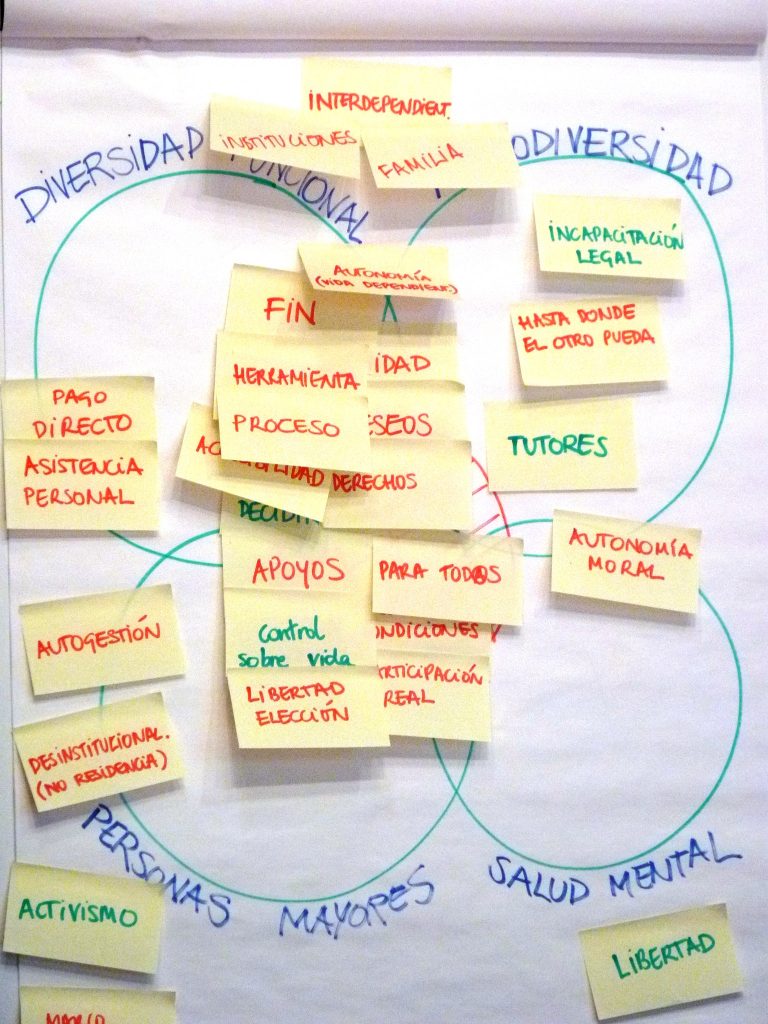 INTERDEPENDIENT.
INSTITUCIONES
FAMILIA
DIVERSIDAD FUNCIONAL
ODIVERSIDAD
INCAPACITACIÓN
LEGAL
AUTONOMÍA
(VIDA DEPENDIENT.)
FIN
HASTA DONDE
EL OTRO PUEDA
IDAD
HERRAMIENTA
PROCESO
SEOS
PAGO
DIRECTO
TUTORES
ASISTENCIA
PERSONAL
DERECHOS
DECIDIR
AUTONOMÍA
MORAL
APOYOS
PARA TOD@S
AUTOGESTIÓN
control
sobre vida
ONDICIONES
LIBERTAD
ELECCIÓN
ARTICIPACIÓN
REAL
DESINSTITUCIONAL.
(NO RESIDENCIA)
PERSONAS MAYORES
SALUD MENTAL
ACTIVISMO
LIBERTAD
MARCO